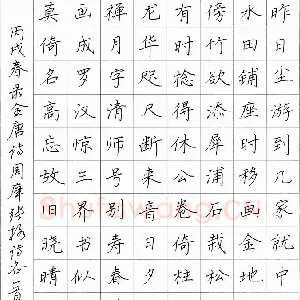 昨日尘游到几家就中
水田日鋪座时移画金地
傍竹欲添犀浦石栽松
有时捻得休公卷倚柱
龙华咫尺断来音习夕
禅月字清师号别寿春
画成罗汉惊三界书似
莫倚名高忘放旧晓晴
丙戌春录全唐诗周诗各一首